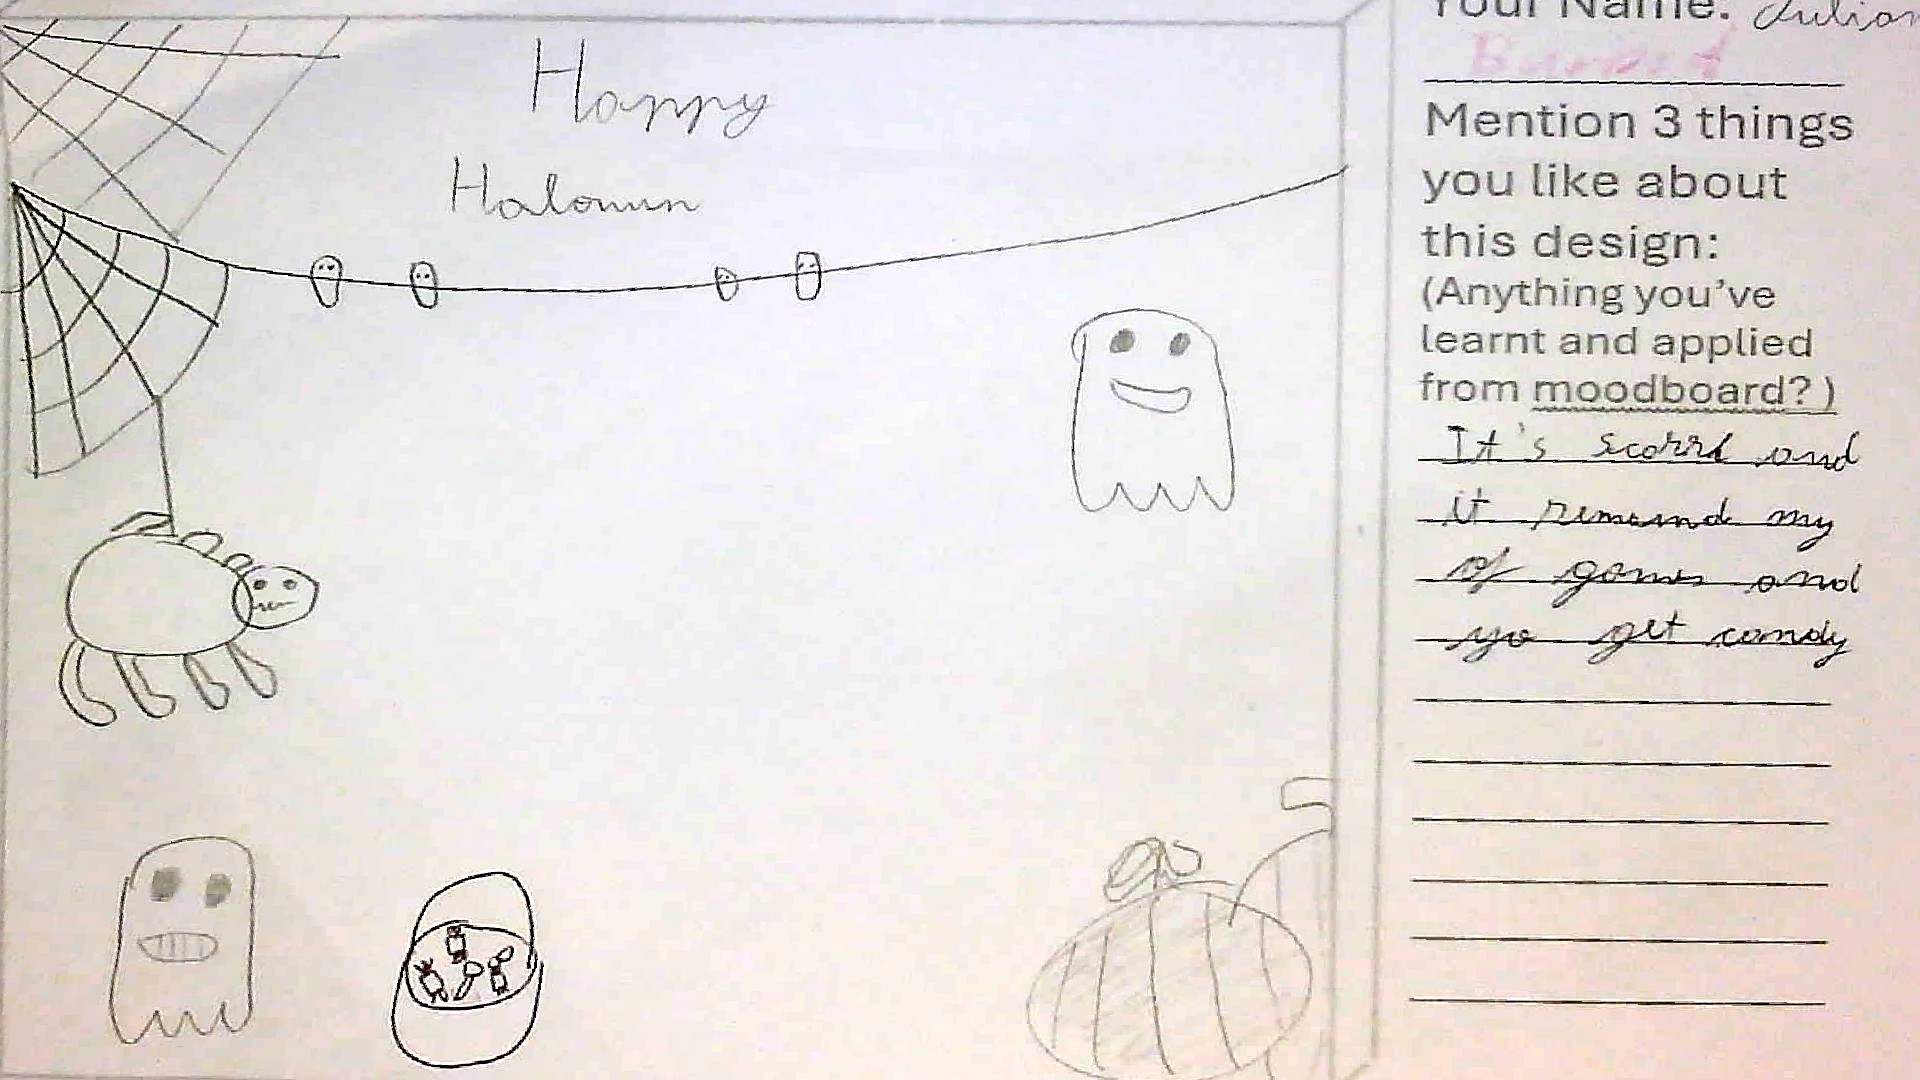 Happy
Halowun
Your Name: Julian
Mention 3 things
you like about
this design:
(Anything you've
learnt and applied
from moodboard? )
It's scarrl and
it remaind my
of games and
yo get candy